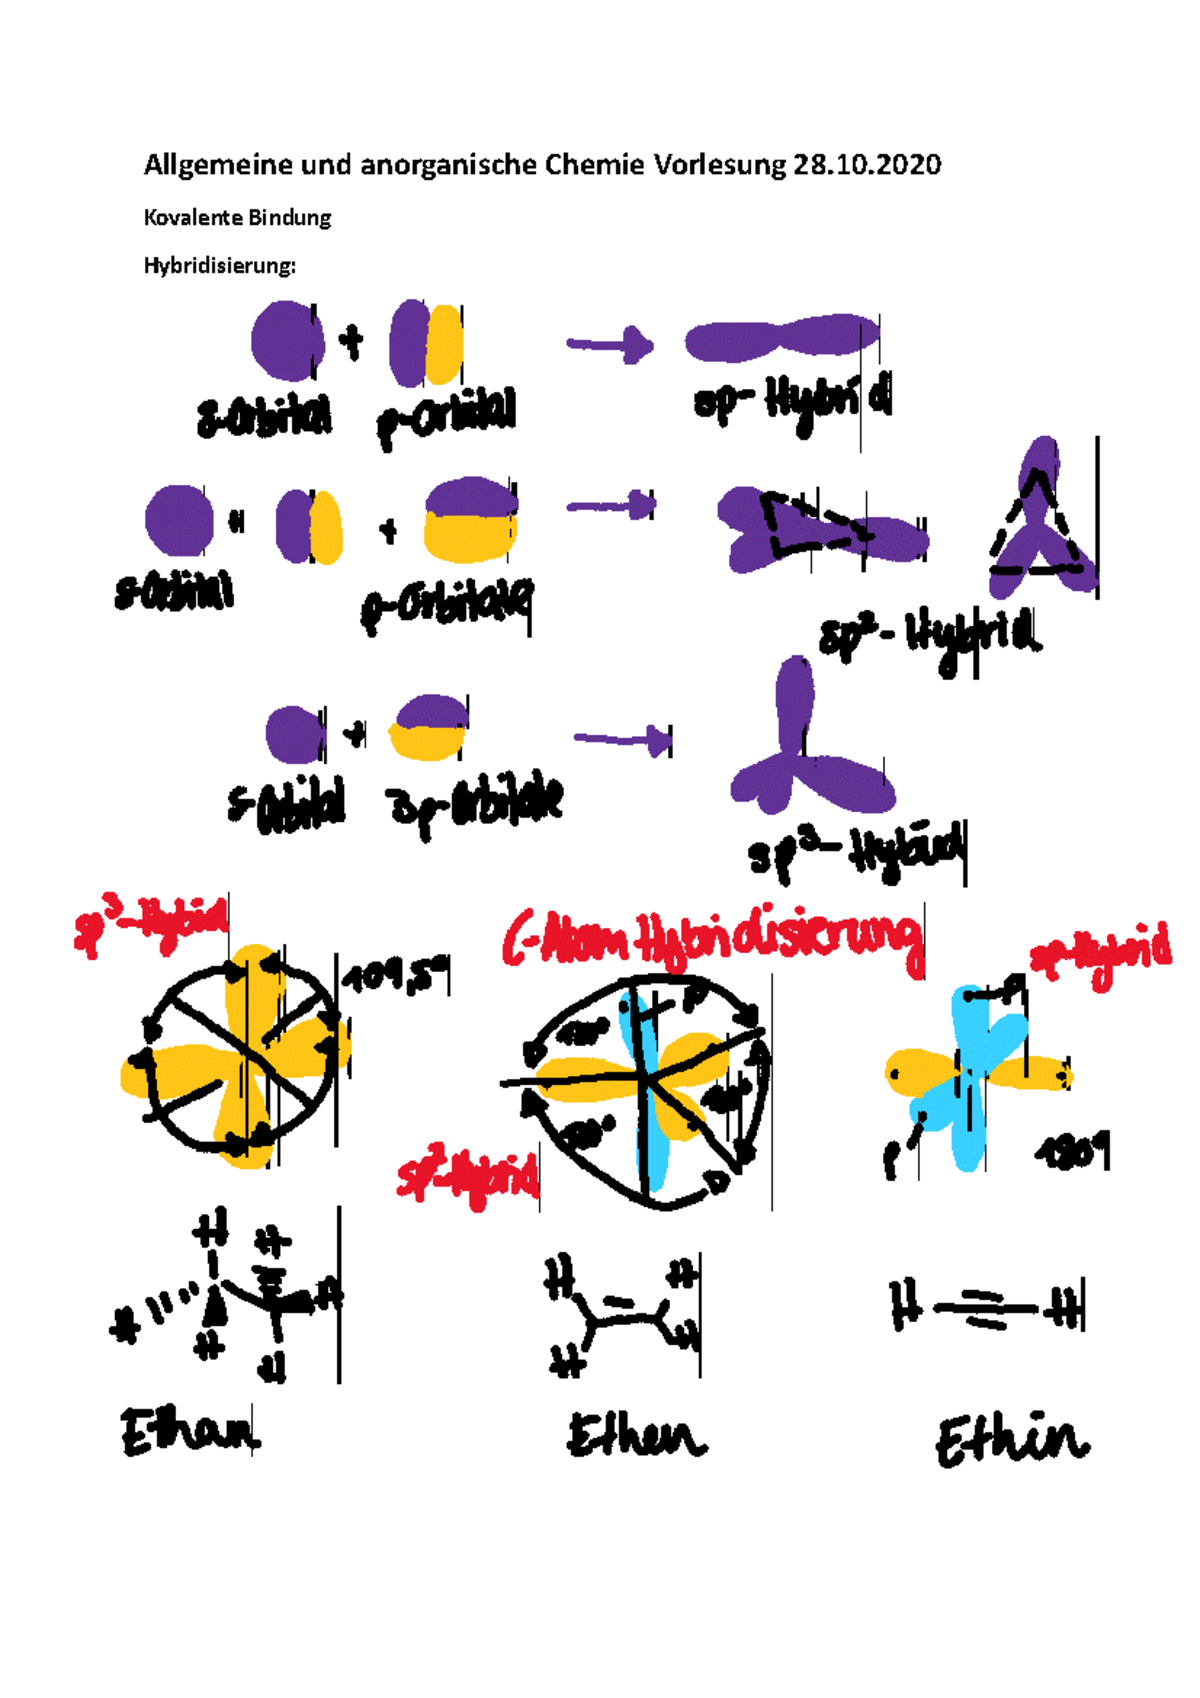 Allgemeine und anorganische Chemie Vorlesung 28.10.2020
Kovalente Bindung
Hybridisierung:
+
s-Orbital p-Orbital sp-Hybrid
+
s-Orbital p-Orbitale
sp²-Hybrid
+
s-Orbital 3p-Orbitale
sp³-Hybrid
sp³-Hybrid C-Atom Hybridisierung sp-Hybrid
109,5°
p p
120°
120°
120°
p 180°
sp²-Hybrid
H H H H
H H H H
H H
H H
Ethan Ethen Ethin